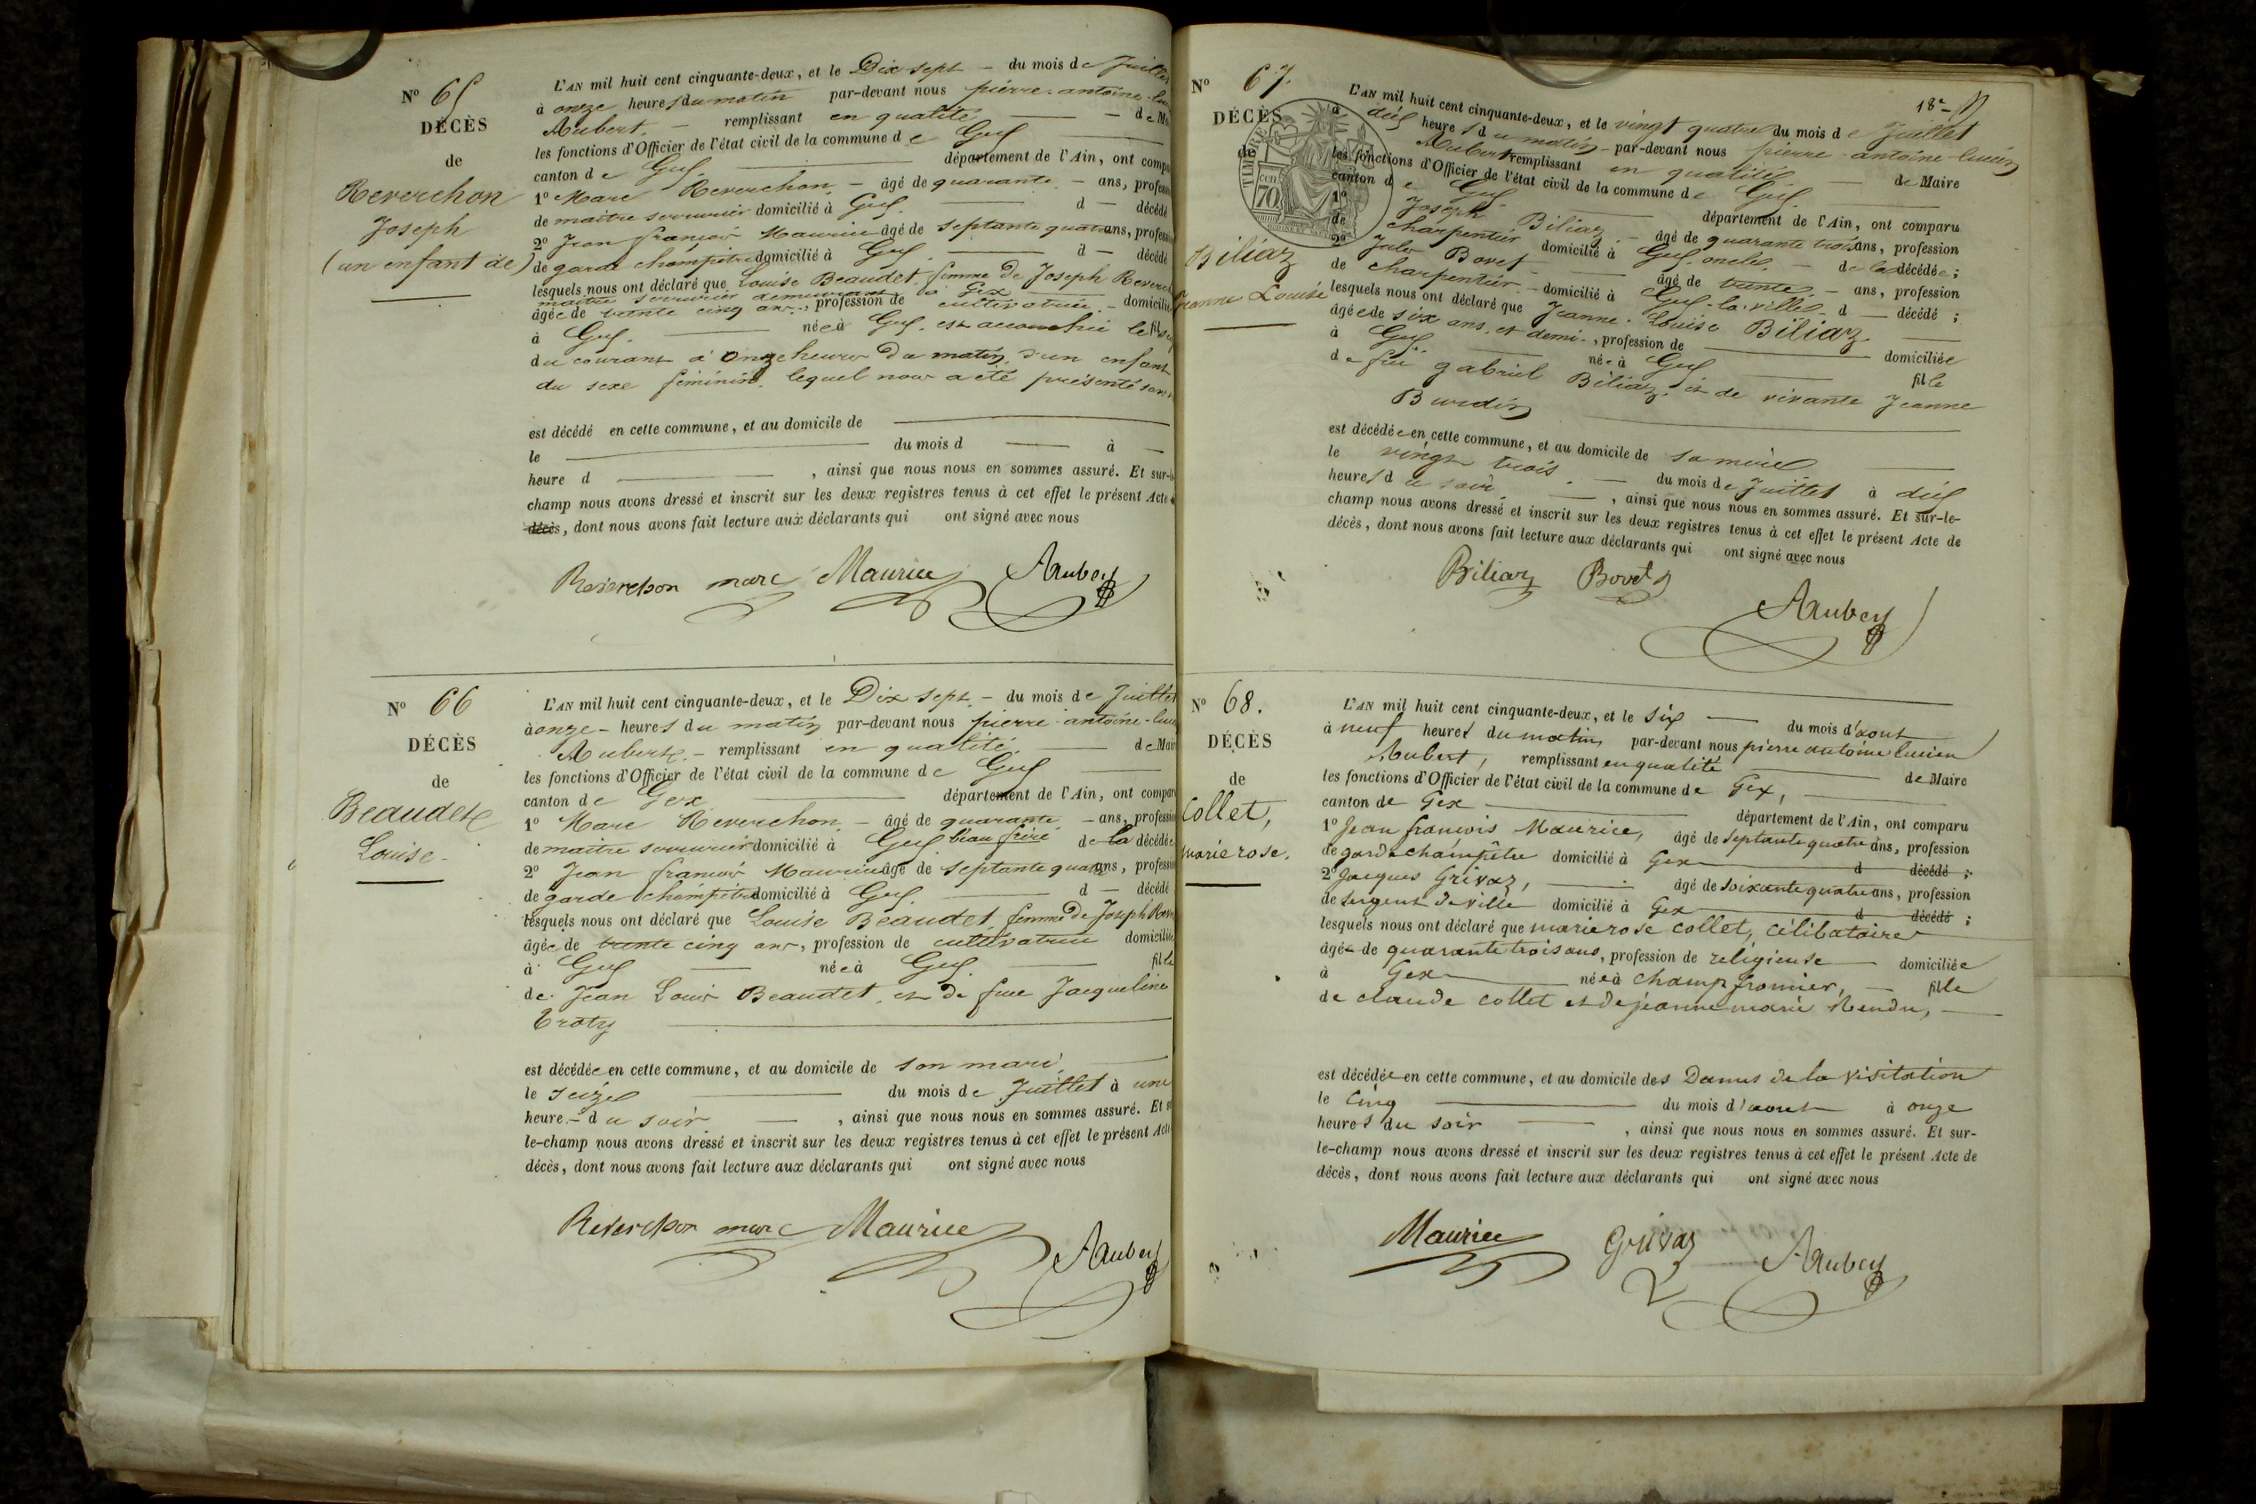 N° 65
DÉCÈS
de
Reverchon
Joseph
(un enfant de)
L'AN mil huit cent cinquante-deux, et le Dix sept - du mois de Juillet
à onze heures du matin par-devant nous pierre-antoine-luc
Aubert. - remplissant en qualité - de Ma
les fonctions d'Officier de l'état civil de la commune de Gex
canton de Gex département de l'Ain, ont compa
1° Marc Reverchon - âgé de quarante - ans, profess
de maitre serrurier domicilié à Gex. d - décédé
2° Jean françois Maurice âgé de septante quatre ans, profess
de garde champêtre domicilié à Gex. d - décédé
lesquels nous ont déclaré que Louise Beaudet, femme de Joseph Reverc
maitre serrurier demeurant à Gex
âgée de trente cinq ans, profession de cultivatrice - domicilié
à Gex. née à Gex. est accouchée le
du courant à onze heures du matin d'un enfant
du sexe féminin, lequel nous a été présenté sans
est décédé en cette commune, et au domicile de
le du mois d à
heure d , ainsi que nous nous en sommes assuré. Et sur-le
champ nous avons dressé et inscrit sur les deux registres tenus à cet effet le présent Acte
décès, dont nous avons fait lecture aux déclarants qui ont signé avec nous
Reverchon marc Maurice Aubert
N° 66
DÉCÈS
de
Beaudet
Louise
L'AN mil huit cent cinquante-deux, et le Dix sept - du mois de Juillet
à onze - heures du matin par-devant nous pierre-antoine-luc
Aubert. - remplissant en qualité. de Mai
les fonctions d'Officier de l'état civil de la commune de Gex
canton de Gex département de l'Ain, ont compar
1° Marc Reverchon - âgé de quarante - ans, professio
de maitre serrurier domicilié à Gex beau frère de la décédée
2° Jean françois Maurice âgé de septante quatre ans, professi
de garde champêtre domicilié à Gex. d - décédé
lesquels nous ont déclaré que Louise Beaudet, femme de Joseph Rev
âgée de trente cinq ans, profession de cultivatrice domicilié
à Gex née à Gex. fille
de Jean Louis Beaudet, et de feue Jacqueline
Traty
est décédée en cette commune, et au domicile de son mari,
le seize du mois de Juillet à une
heure - du soir , ainsi que nous nous en sommes assuré. Et s
le-champ nous avons dressé et inscrit sur les deux registres tenus à cet effet le présent Acte
décès, dont nous avons fait lecture aux déclarants qui ont signé avec nous
Reverchon marc Maurice Aubert
18e
N° 67.
DÉCÈS
de
Biliaz
Jeanne Louise
TIMBRE
70 cen
L'AN mil huit cent cinquante-deux, et le vingt quatre du mois de Juillet
à dix heures du matin - par-devant nous pierre-antoine-lucien
Aubert remplissant en qualité - de Maire
les fonctions d'Officier de l'état civil de la commune de Gex
canton de Gex département de l'Ain, ont comparu
1° Joseph Biliaz - âgé de quarante trois ans, profession
de charpentier domicilié à Gex, oncle - de la décédée;
2° Jules Bovet - âgé de trente - ans, profession
de charpentier - domicilié à Gex-la-ville. d - décédé;
lesquels nous ont déclaré que Jeanne-Louise Biliaz
âgée de six ans et demi, profession de domiciliée
à Gex née à Gex fille
de feu gabriel Biliaz, et de vivante Jeanne
Burdin
est décédée en cette commune, et au domicile de sa mère
le vingt trois. - du mois de Juillet à dix
heures du soir , ainsi que nous nous en sommes assuré. Et sur-le-
champ nous avons dressé et inscrit sur les deux registres tenus à cet effet le présent Acte de
décès, dont nous avons fait lecture aux déclarants qui ont signé avec nous
Biliaz Bovet
Aubert
N° 68.
DÉCÈS
de
Collet,
marie rose.
L'AN mil huit cent cinquante-deux, et le six du mois d'aout
à neuf heures du matin par-devant nous pierre antoine lucien
Aubert, remplissant en qualité de Maire
les fonctions d'Officier de l'état civil de la commune de Gex,
canton de Gex département de l'Ain, ont comparu
1° Jean françois Maurice, âgé de septante quatre ans, profession
de garde champêtre domicilié à Gex d décédé;
2° Jacques Grivaz, âgé de soixante quatre ans, profession
de sergent de ville domicilié à Gex d décédé;
lesquels nous ont déclaré que marie rose collet, célibataire
âgée de quarante trois ans, profession de religieuse domiciliée
à Gex née à champfromier, - fille
de claude collet et de jeanne marie Rendu,
est décédée en cette commune, et au domicile des Dames de la visitation
le cinq du mois d'aout à onze
heures du soir , ainsi que nous nous en sommes assuré. Et sur-
le-champ nous avons dressé et inscrit sur les deux registres tenus à cet effet le présent Acte de
décès, dont nous avons fait lecture aux déclarants qui ont signé avec nous
Maurice Grivaz Aubert